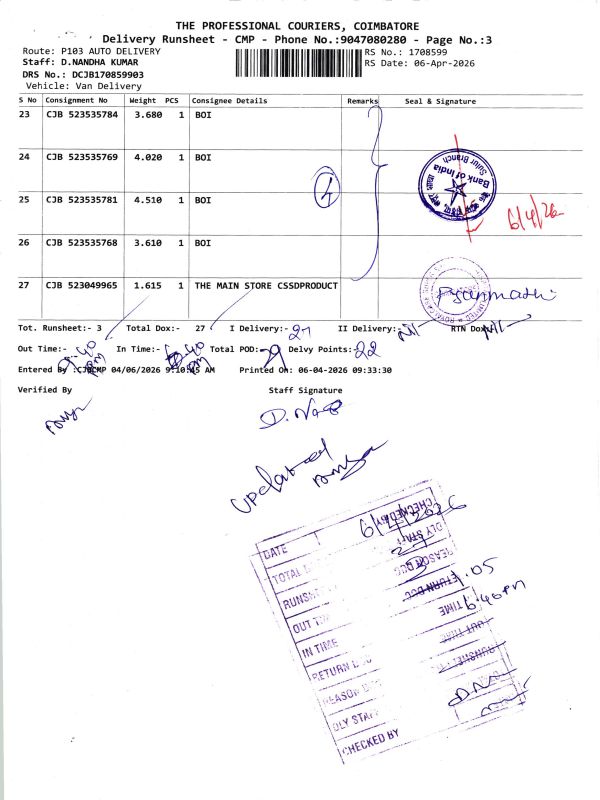 THE PROFESSIONAL COURIERS, COIMBATORE
Delivery Runsheet - CMP - Phone No.:9047080280 - Page No.:3
Route: P103 AUTO DELIVERY
RS No.: 1708599
Staff: D.NANDHA KUMAR
RS Date: 06-Apr-2026
DRS No.: DCJB170859903
Vehicle: Van Delivery
S No Consignment No Weight PCS Consignee Details Remarks Seal & Signature
23 CJB 523535784 3.680 1 BOI
24 CJB 523535769 4.020 1 BOI
Bank of India
Sulur Branch
4
6/4/26
25 CJB 523535781 4.510 1 BOI
26 CJB 523535768 3.610 1 BOI
27 CJB 523049965 1.615 1 THE MAIN STORE CSSDPRODUCT
Tot. Runsheet:- 3 Total Dox:- 27 I Delivery:- 27 II Delivery:- Nil RTN Dox:- Nil
Out Time:- In Time:- Total POD:- Delvy Points:- 22
Entered By :CJBCMP 04/06/2026 9:10:45 AM Printed On: 06-04-2026 09:33:30
Verified By Staff Signature
updated
DATE 6/4/2026
TOTAL
OUT TIME
IN TIME 6:40 Pm
RETURN DOC
REASON DOC
DLY STAFF
CHECKED BY